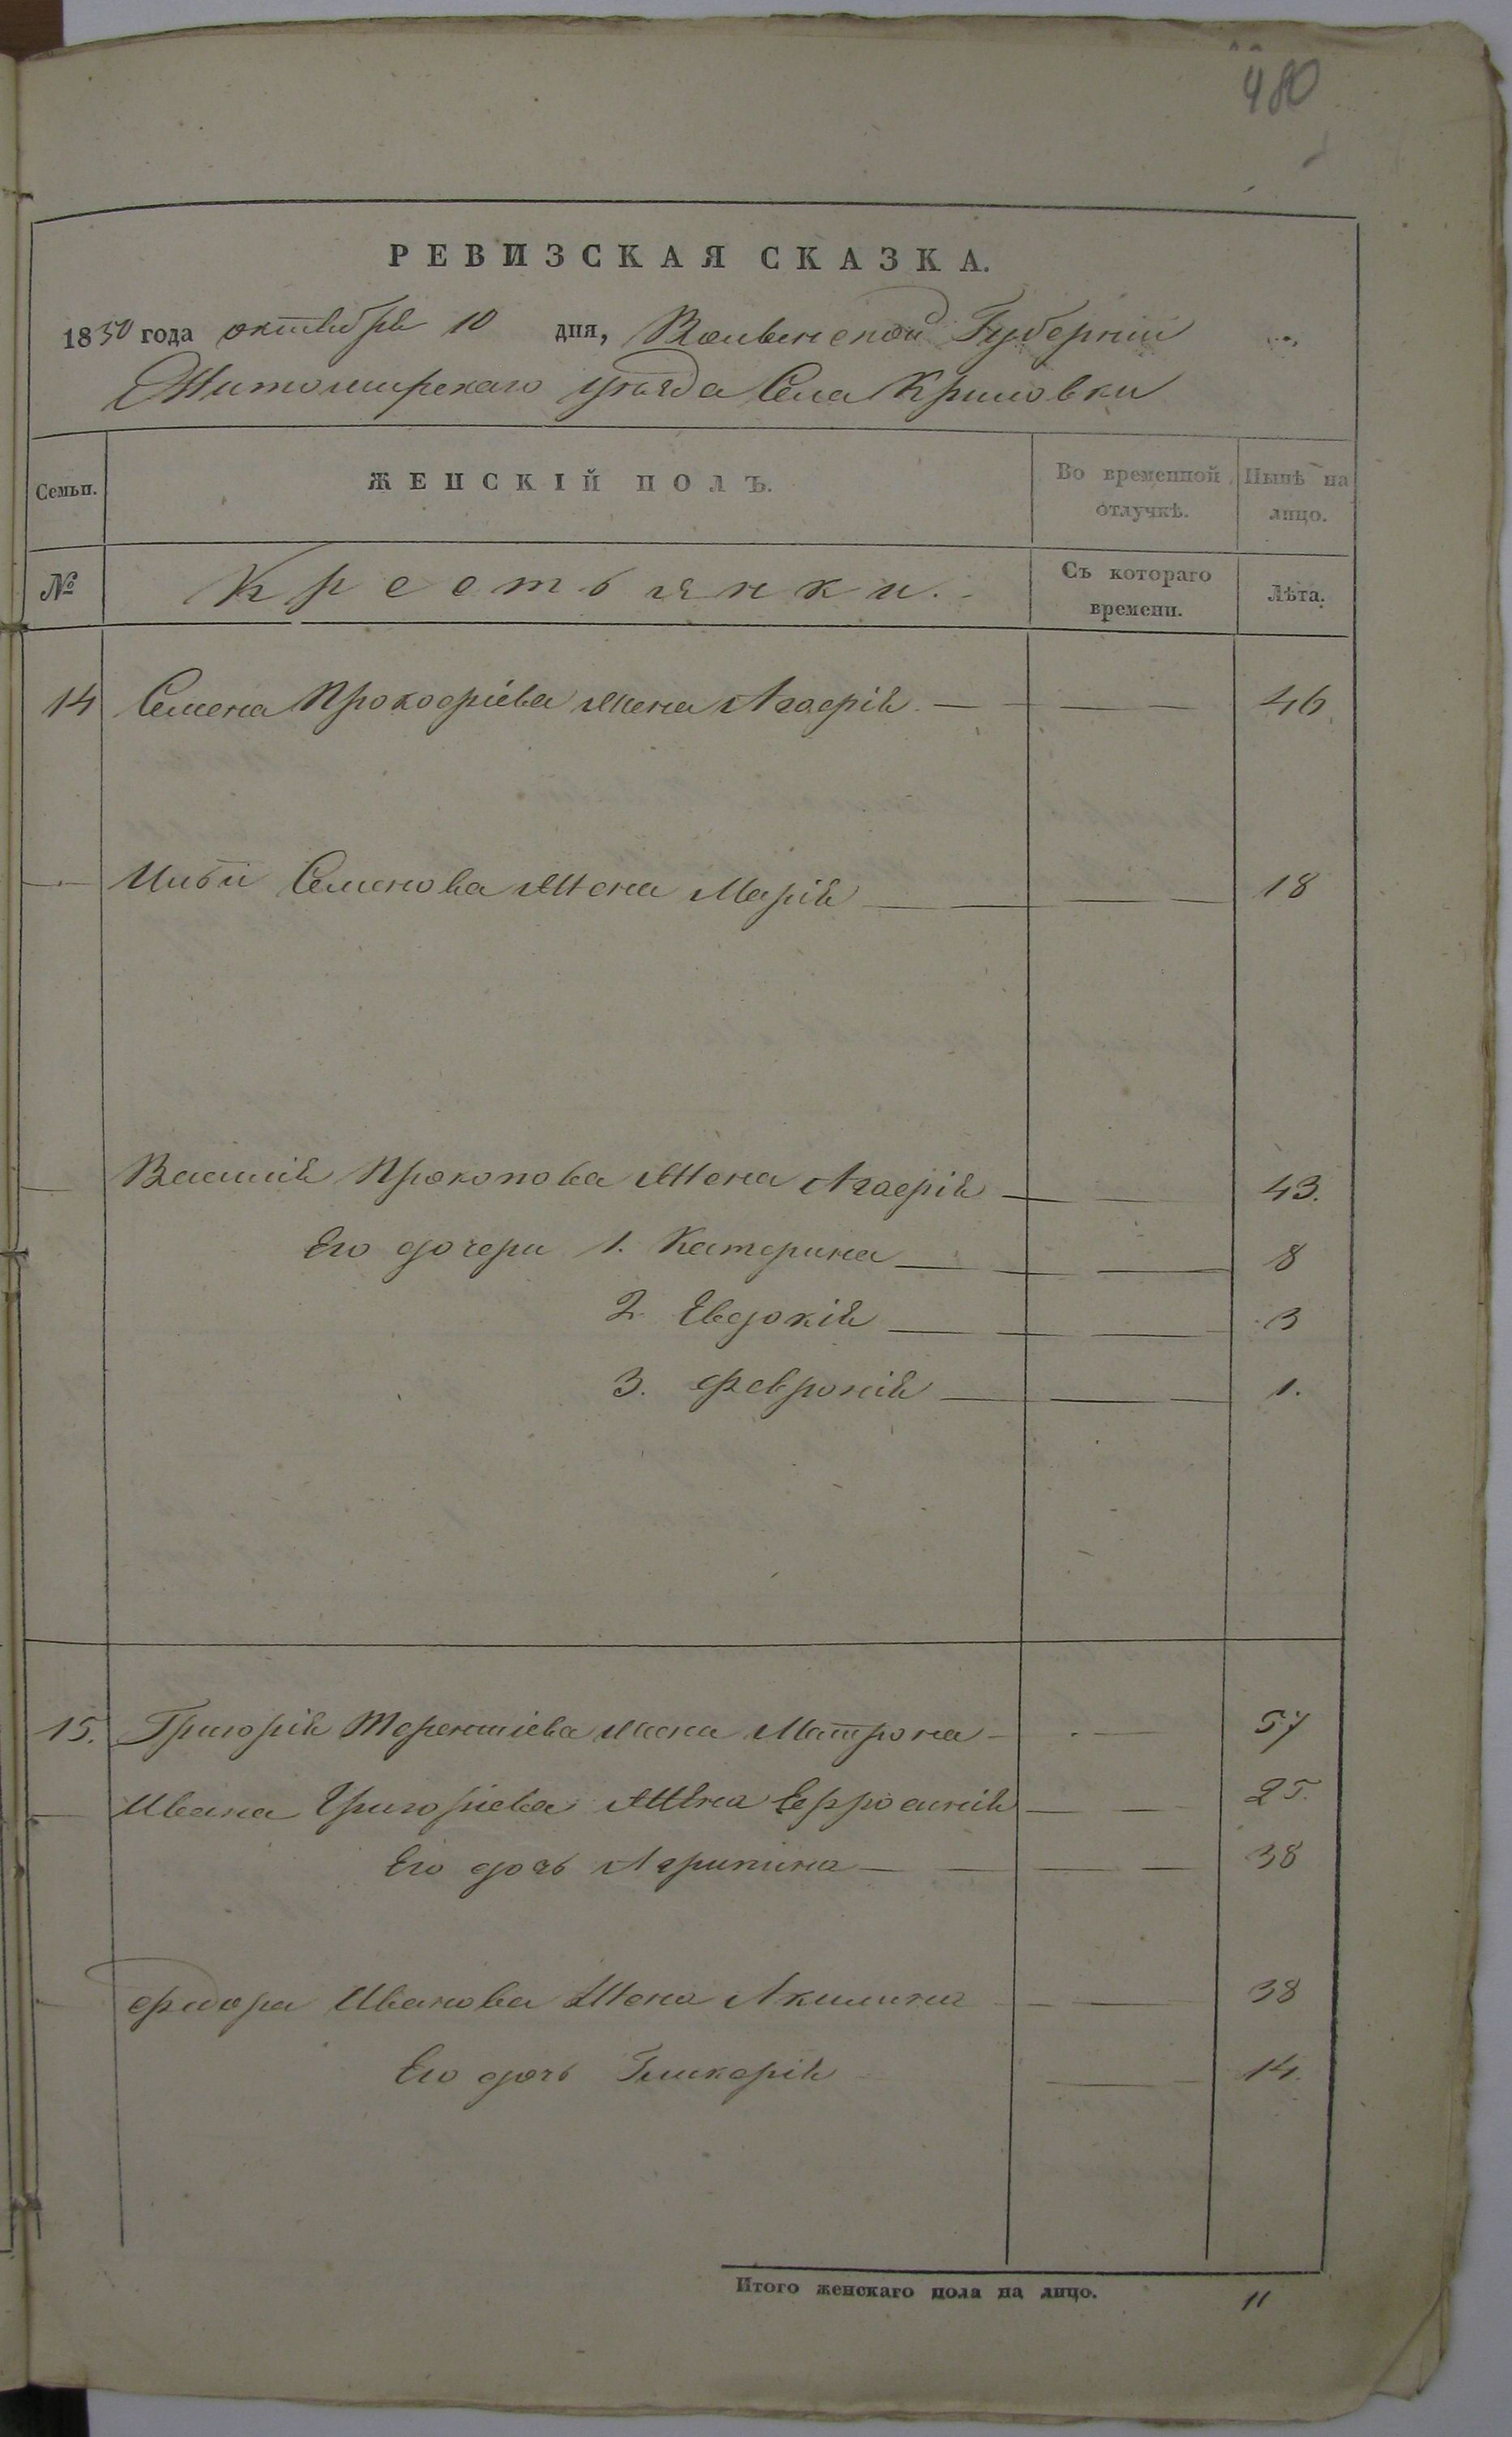 480
РЕВИЗСКАЯ СКАЗКА.
1850 года октября 10 дня, Волынской Губерніи
Житомирскаго уѣзда Села Крыловки
Семьи. ЖЕНСКІЙ ПОЛЪ. Во временной отлучкѣ. Нынѣ на лицо.
№ Крестьянки. Съ котораго времени. Лѣта.
14 Семена Прокофіева жена Агафія 46
Ильи Семенова Жена Марія 18
Василія Прокопова Жена Агафія 43.
Его дочери 1. Катерина 8
2. Евдокія 3
3. Февронія 1.
15. Григорія Терентіева жена Матрона 57
Ивана Григоріева Жена Ефросинія 25.
Его дочь Агрипина 38
Фидора Иванова Жена Акилина 38
Его дочь Гликерія 14.
Итого женскаго пола на лицо. 11